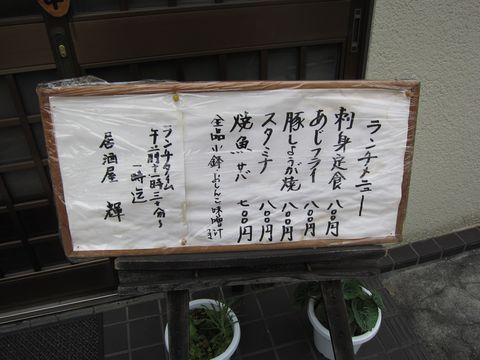 ランチメニュー
刺身定食 八〇〇円
あじフライ 八〇〇円
豚しょうが焼 八〇〇円
スタミナ 八〇〇円
焼魚 サバ 七〇〇円
全品小鉢・おしんこ・味噌汁
ランチタイム
午前十一時三十分〜
一時迄
居酒屋 輝